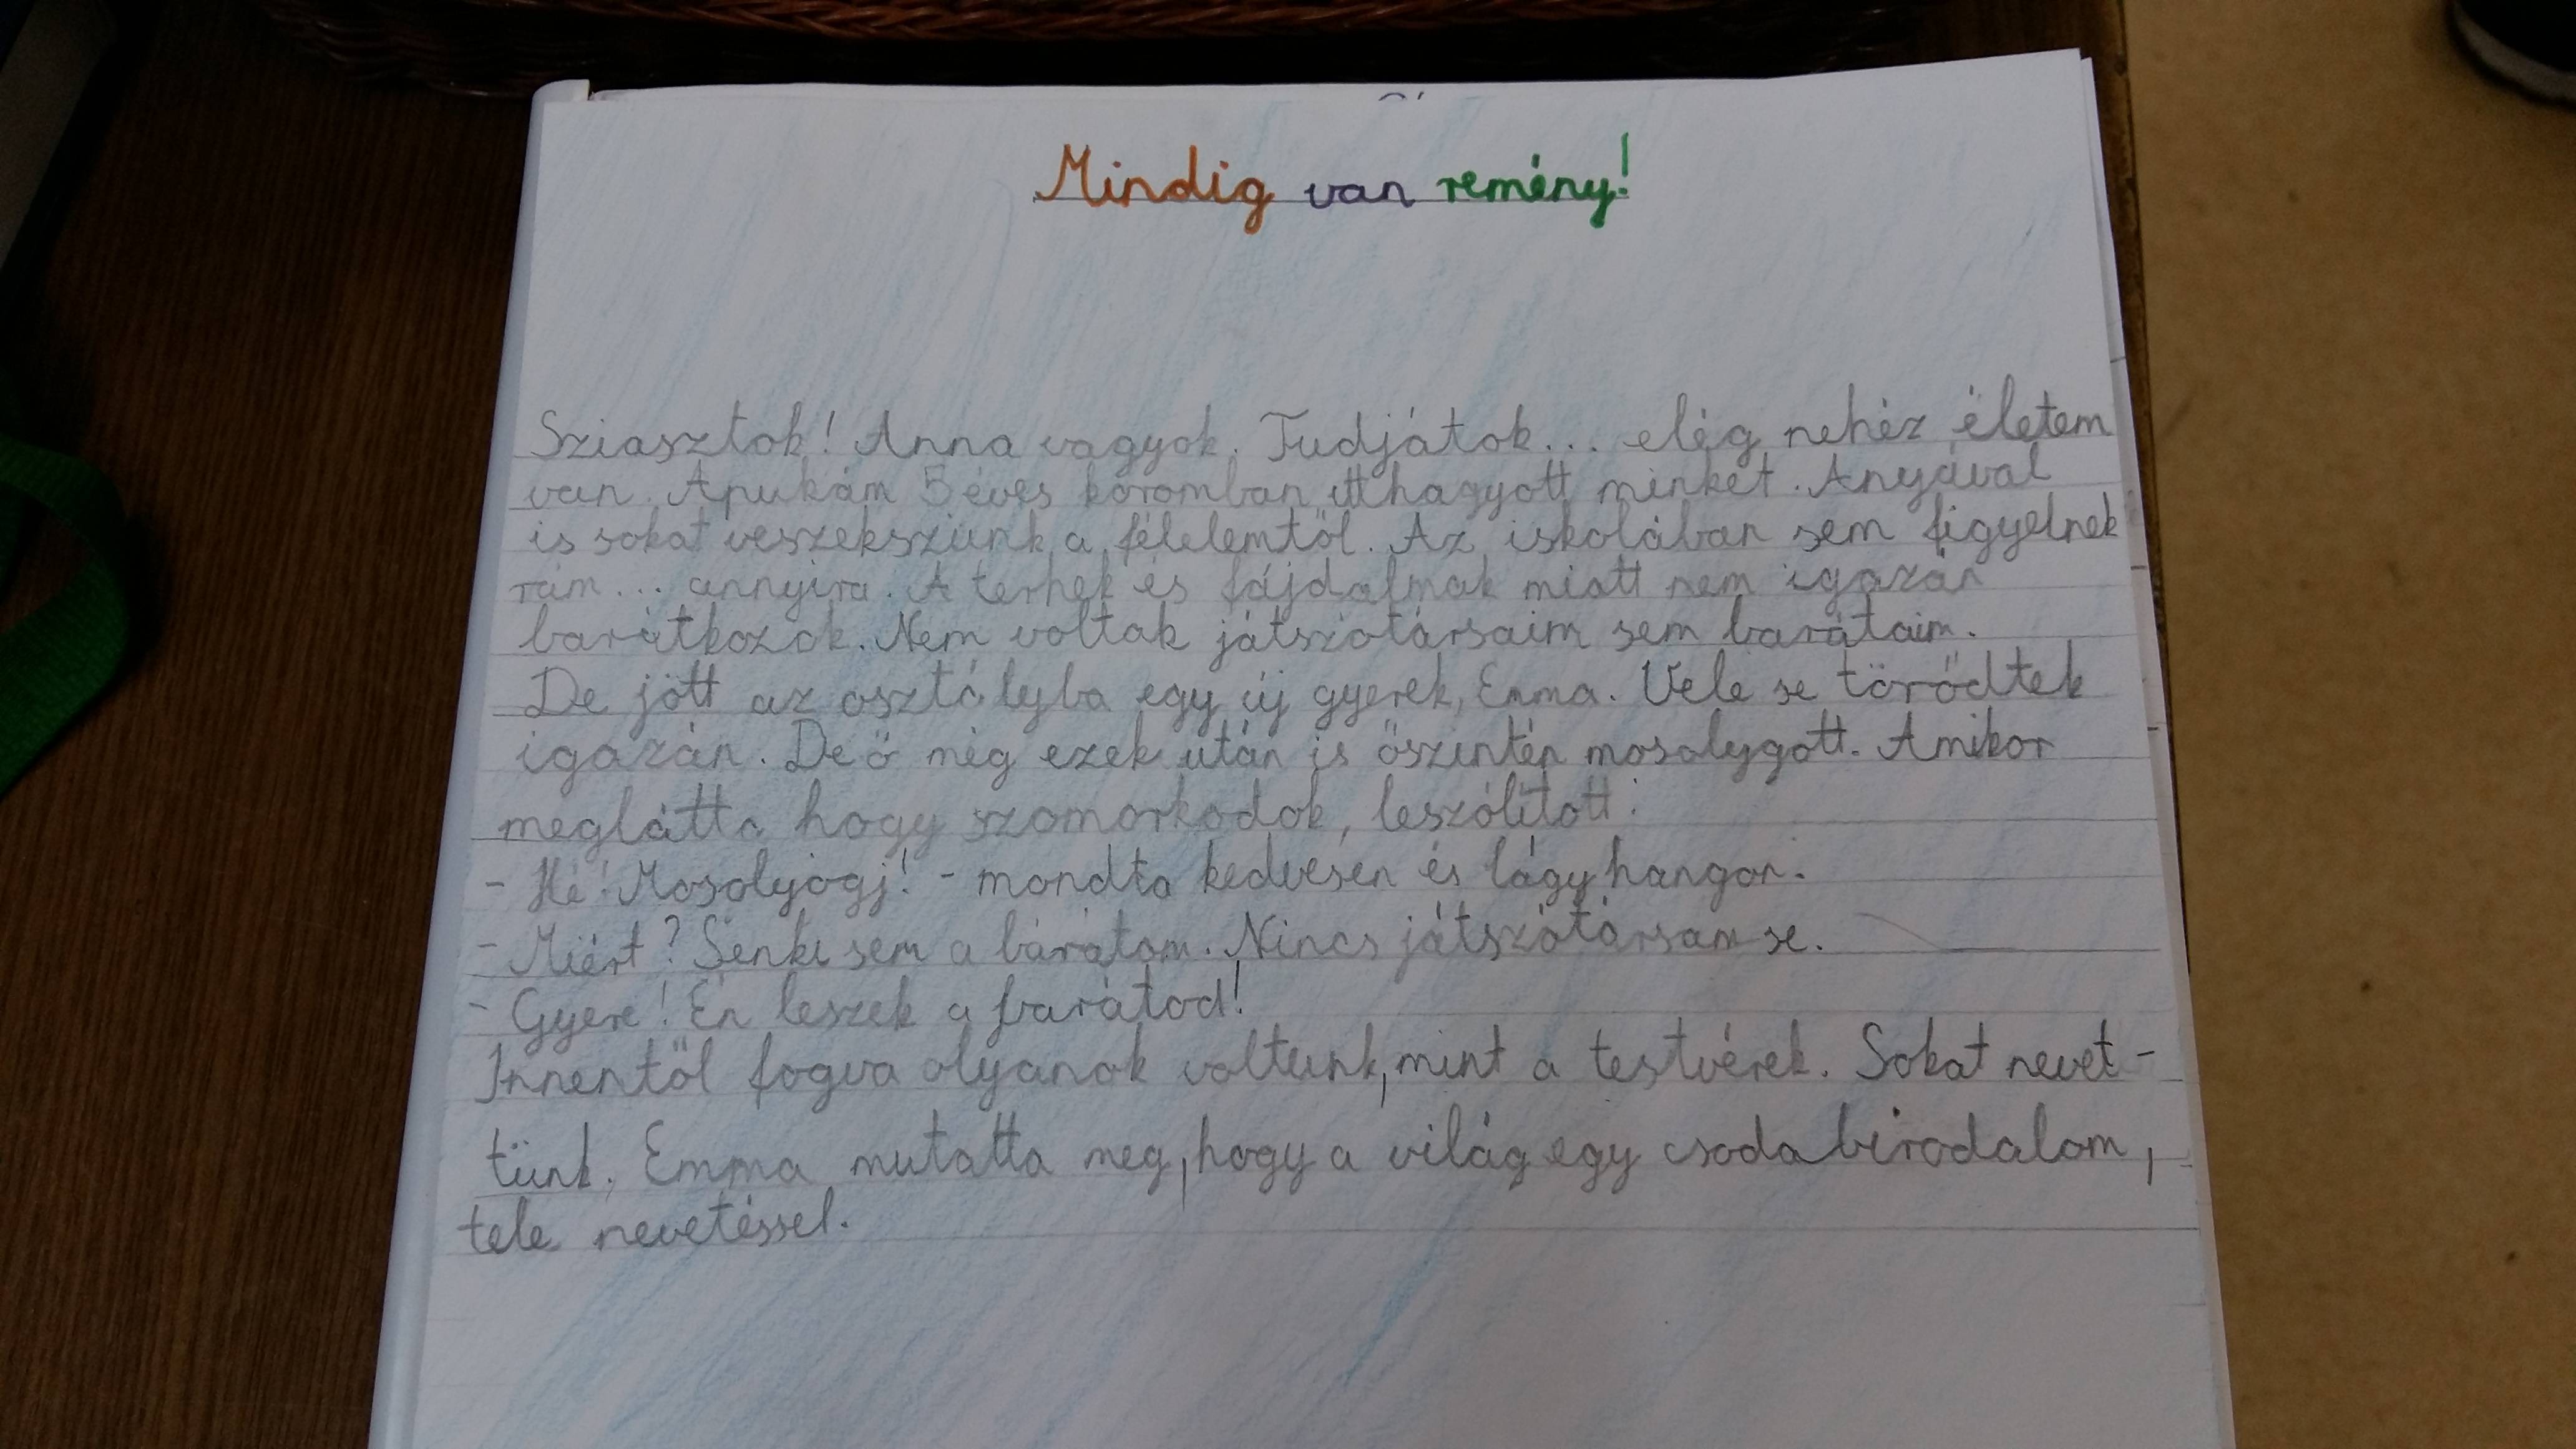 Mindig van remény!
Sziasztok! Anna vagyok. Tudjátok... elég nehéz életem
van. Apukám 5 éves koromban itthagyott minket. Anyával
is sokat veszekszünk a félelemtől. Az iskolában sem figyelnek
rám... annyira. A terhek és fájdalmak miatt nem igazán
barátkozok. Nem voltak játszótársaim sem barátaim.
De jött az osztályba egy új gyerek, Emma. Vele se törődtek
igazán. De ő még ezek után is őszintén mosolygott. Amikor
meglátta hogy szomorkodok, leszólított:
- Hé! Mosolyogj! - mondta kedvesen és lágy hangon.
- Miért? Senki sem a barátom. Nincs játszótársam se.
- Gyere! Én leszek a barátod!
Innentől fogva olyanok voltunk, mint a testvérek. Sokat nevet-
tünk. Emma mutatta meg, hogy a világ egy csodabirodalom,
tele nevetéssel.